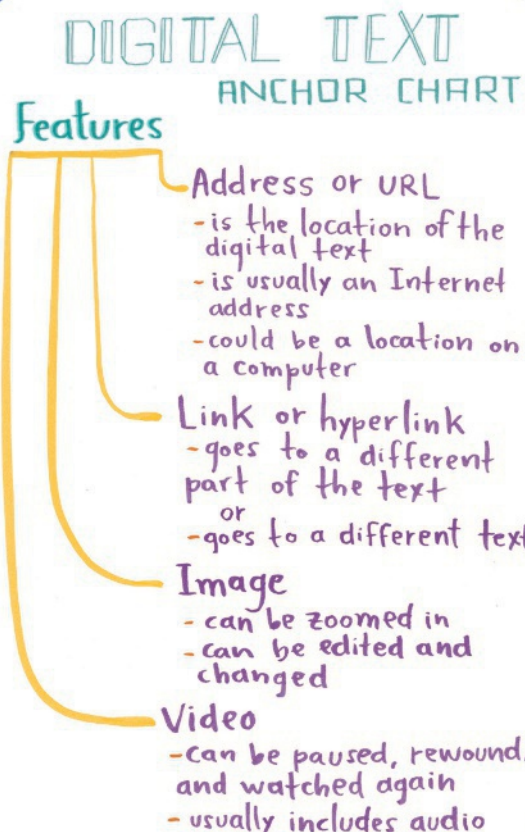 DIGITAL TEXT
ANCHOR CHART
Features
Address or URL
- is the location of the
digital text
- is usually an Internet
address
- could be a location on
a computer
Link or hyperlink
- goes to a different
part of the text
or
- goes to a different text
Image
- can be zoomed in
- can be edited and
changed
Video
- can be paused, rewound,
and watched again
- usually includes audio